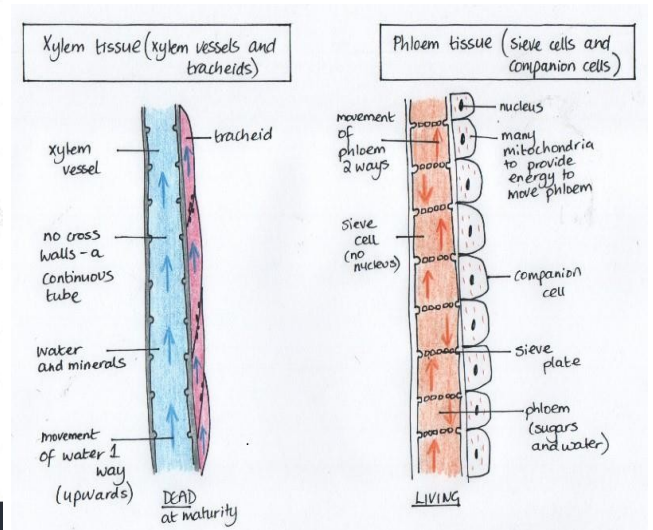 Xylem tissue (xylem vessels and
tracheids)
xylem
vessel
tracheid
no cross
walls - a
continuous
tube
water
and minerals
movement
of water 1
way
(upwards)
DEAD
at maturity
Phloem tissue (sieve cells and
companion cells)
movement
of
phloem
2 ways
nucleus
many
mitochondria
to provide
energy to
move phloem
sieve
cell
(no
nucleus)
companion
cell
sieve
plate
phloem
(sugars
and water)
LIVING